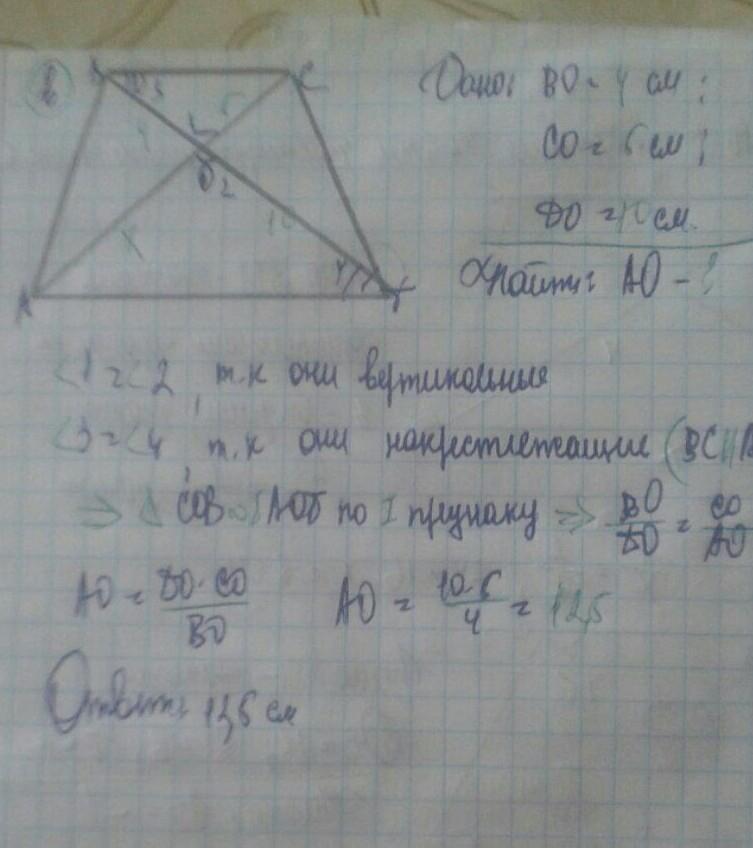 Дано: BO = 4 см;
CO = 5 см;
DO = 10 см.
Найти: AO - ?
B
C
A
D
O
1
2
3
4
4
5
10
x
<1 = <2, т.к они вертикальные
<3 = <4, т.к они накрестлежащие (BC||A
=> Δ COB ∞ ΔAOD по I признаку => BO/DO = CO/AO
AO = DO·CO/BO AO = 10·5/4 = 12,5
Ответ: 12,5 см